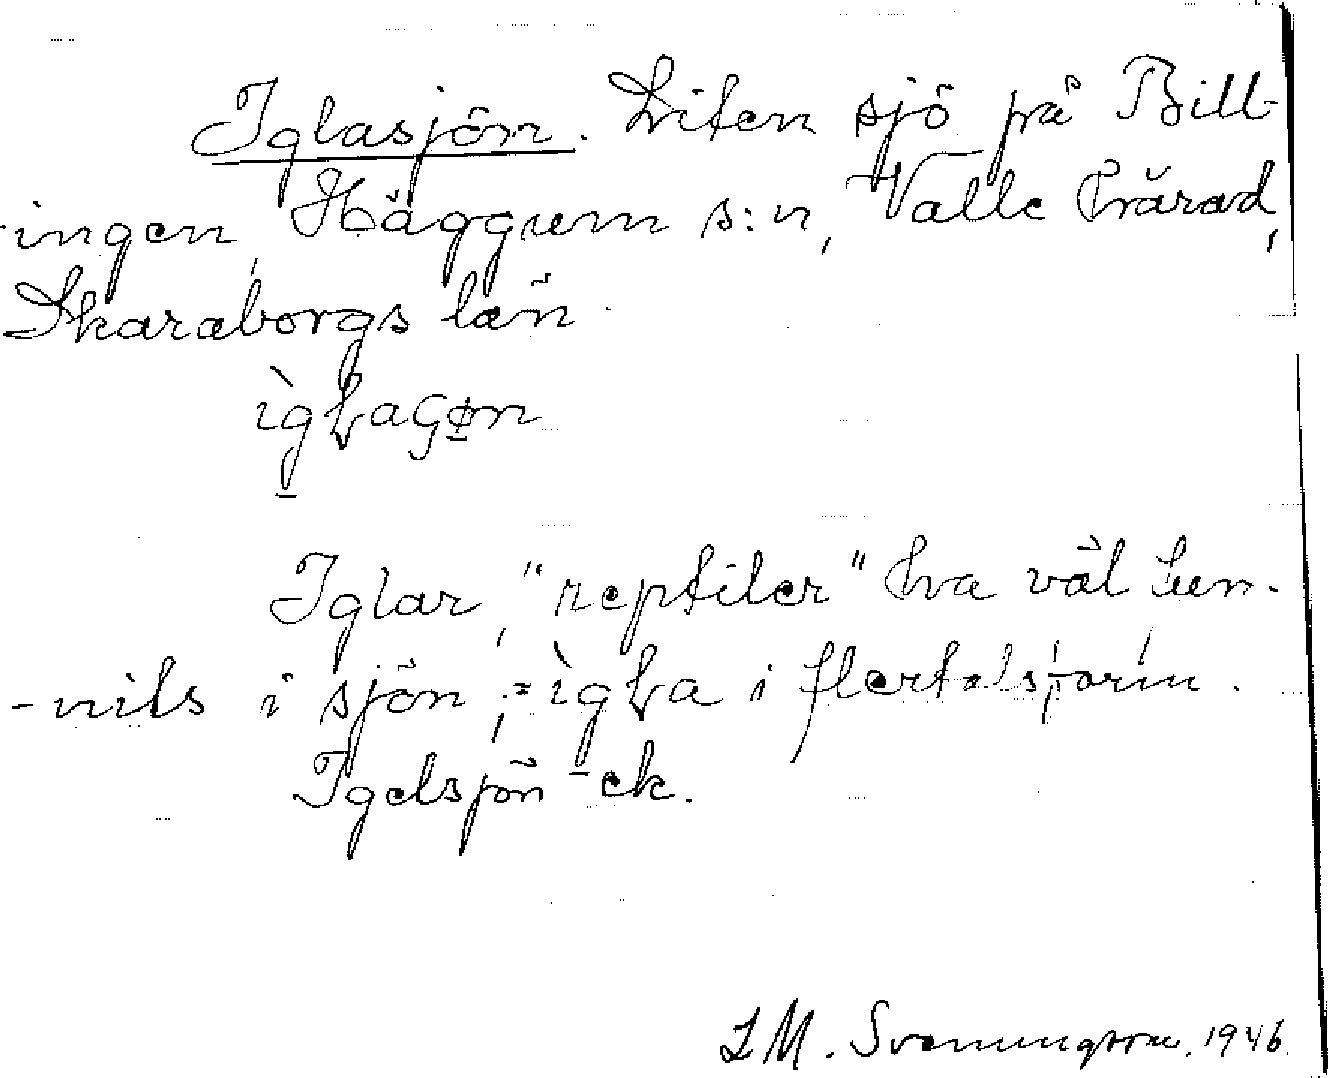 Iglasjön. Liten sjö på Bill-
ingen, Häggum s:n, Valle härad,
Skaraborgs län.
ìgɫaɢøn
Iglar, "reptiler" ha väl fun-
-nits i sjön; = ìgɫa i flertalsform.
Igelsjön ek.
L M. Svenungsson. 1946